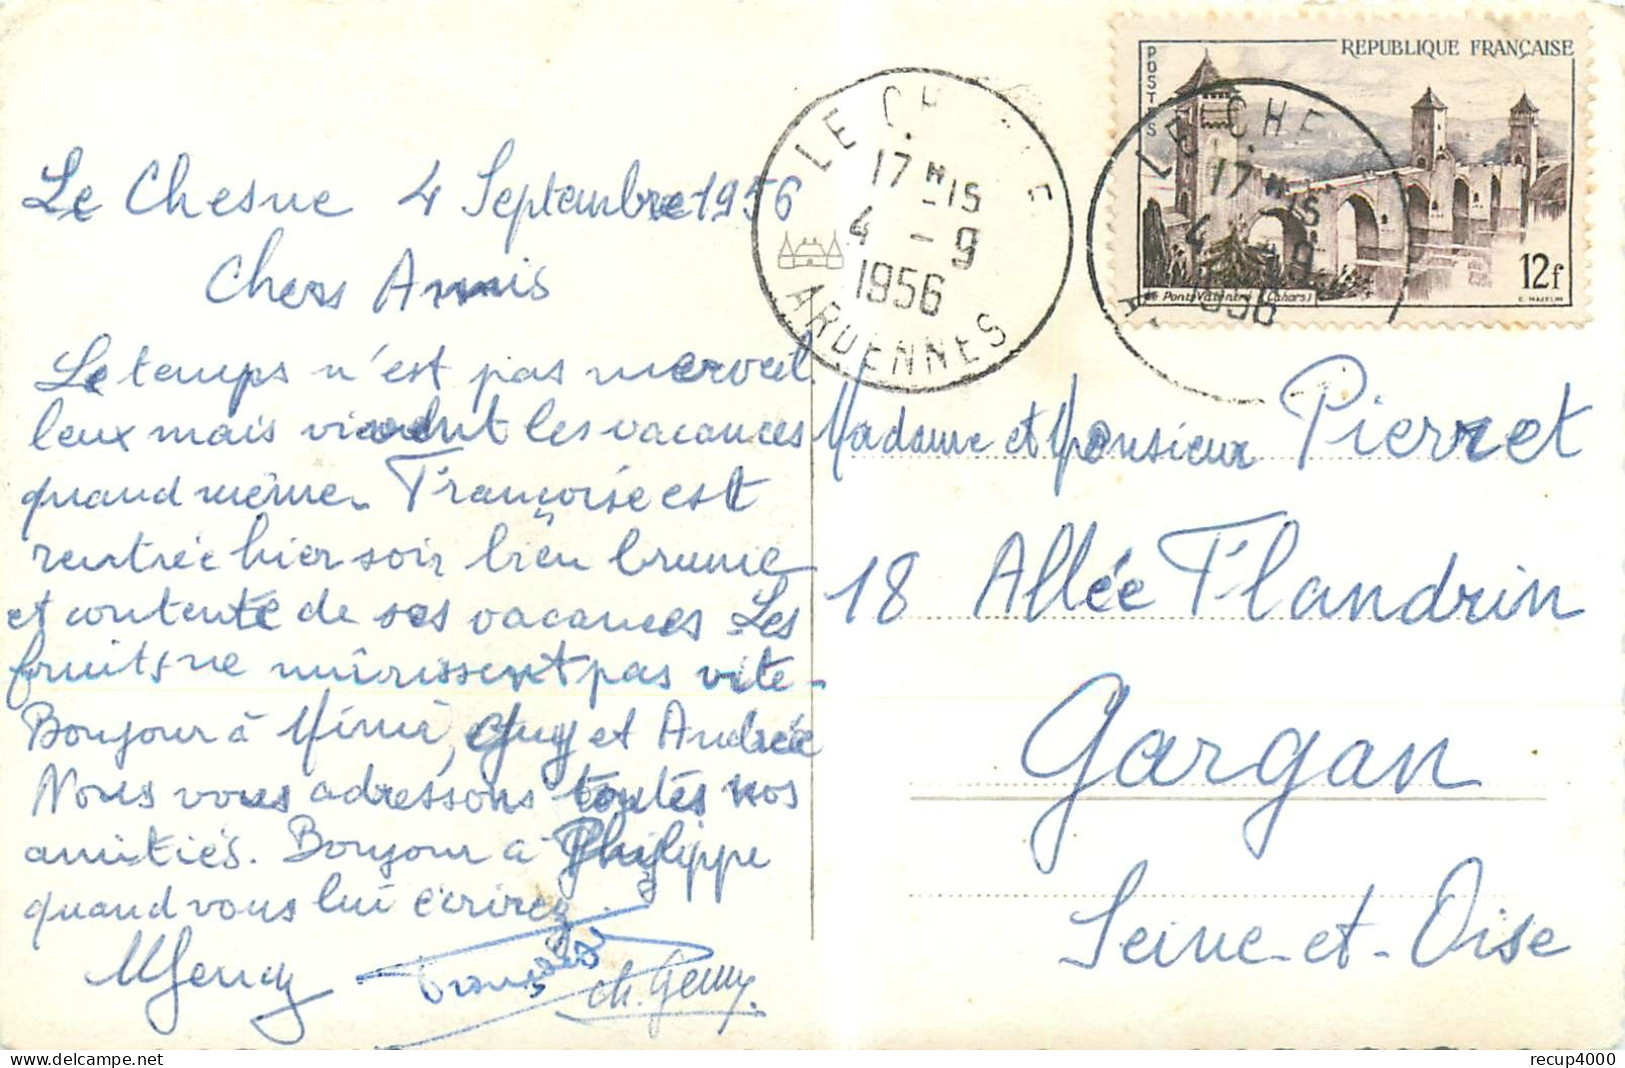 Le Chesne 4 Septembre 1956
Chers Amis
Le temps n'est pas merveil
leux mais vivent les vacances
quand même. Françoise est
rentrée hier soir bien brunie
et contente de ses vacances. Les
fruits ne mûrissent pas vite.
Bonjour à Mimi, Guy et Andrée
Nous vous adressons toutes nos
amitiés. Bonjour à Philippe
quand vous lui écrirez.
Françoise
LE CH
17 H 15
4 - 9
1956
ARDENNES
LE CHE
17 H 15
4 - 9
1956
A
POSTES
REPUBLIQUE FRANÇAISE
Le Pont Valentré (Cahors)
12f
C. MAZELIN
Madame et Monsieur Pierret
18 Allée Flandrin
Gargan
Seine-et-Oise
recup4000